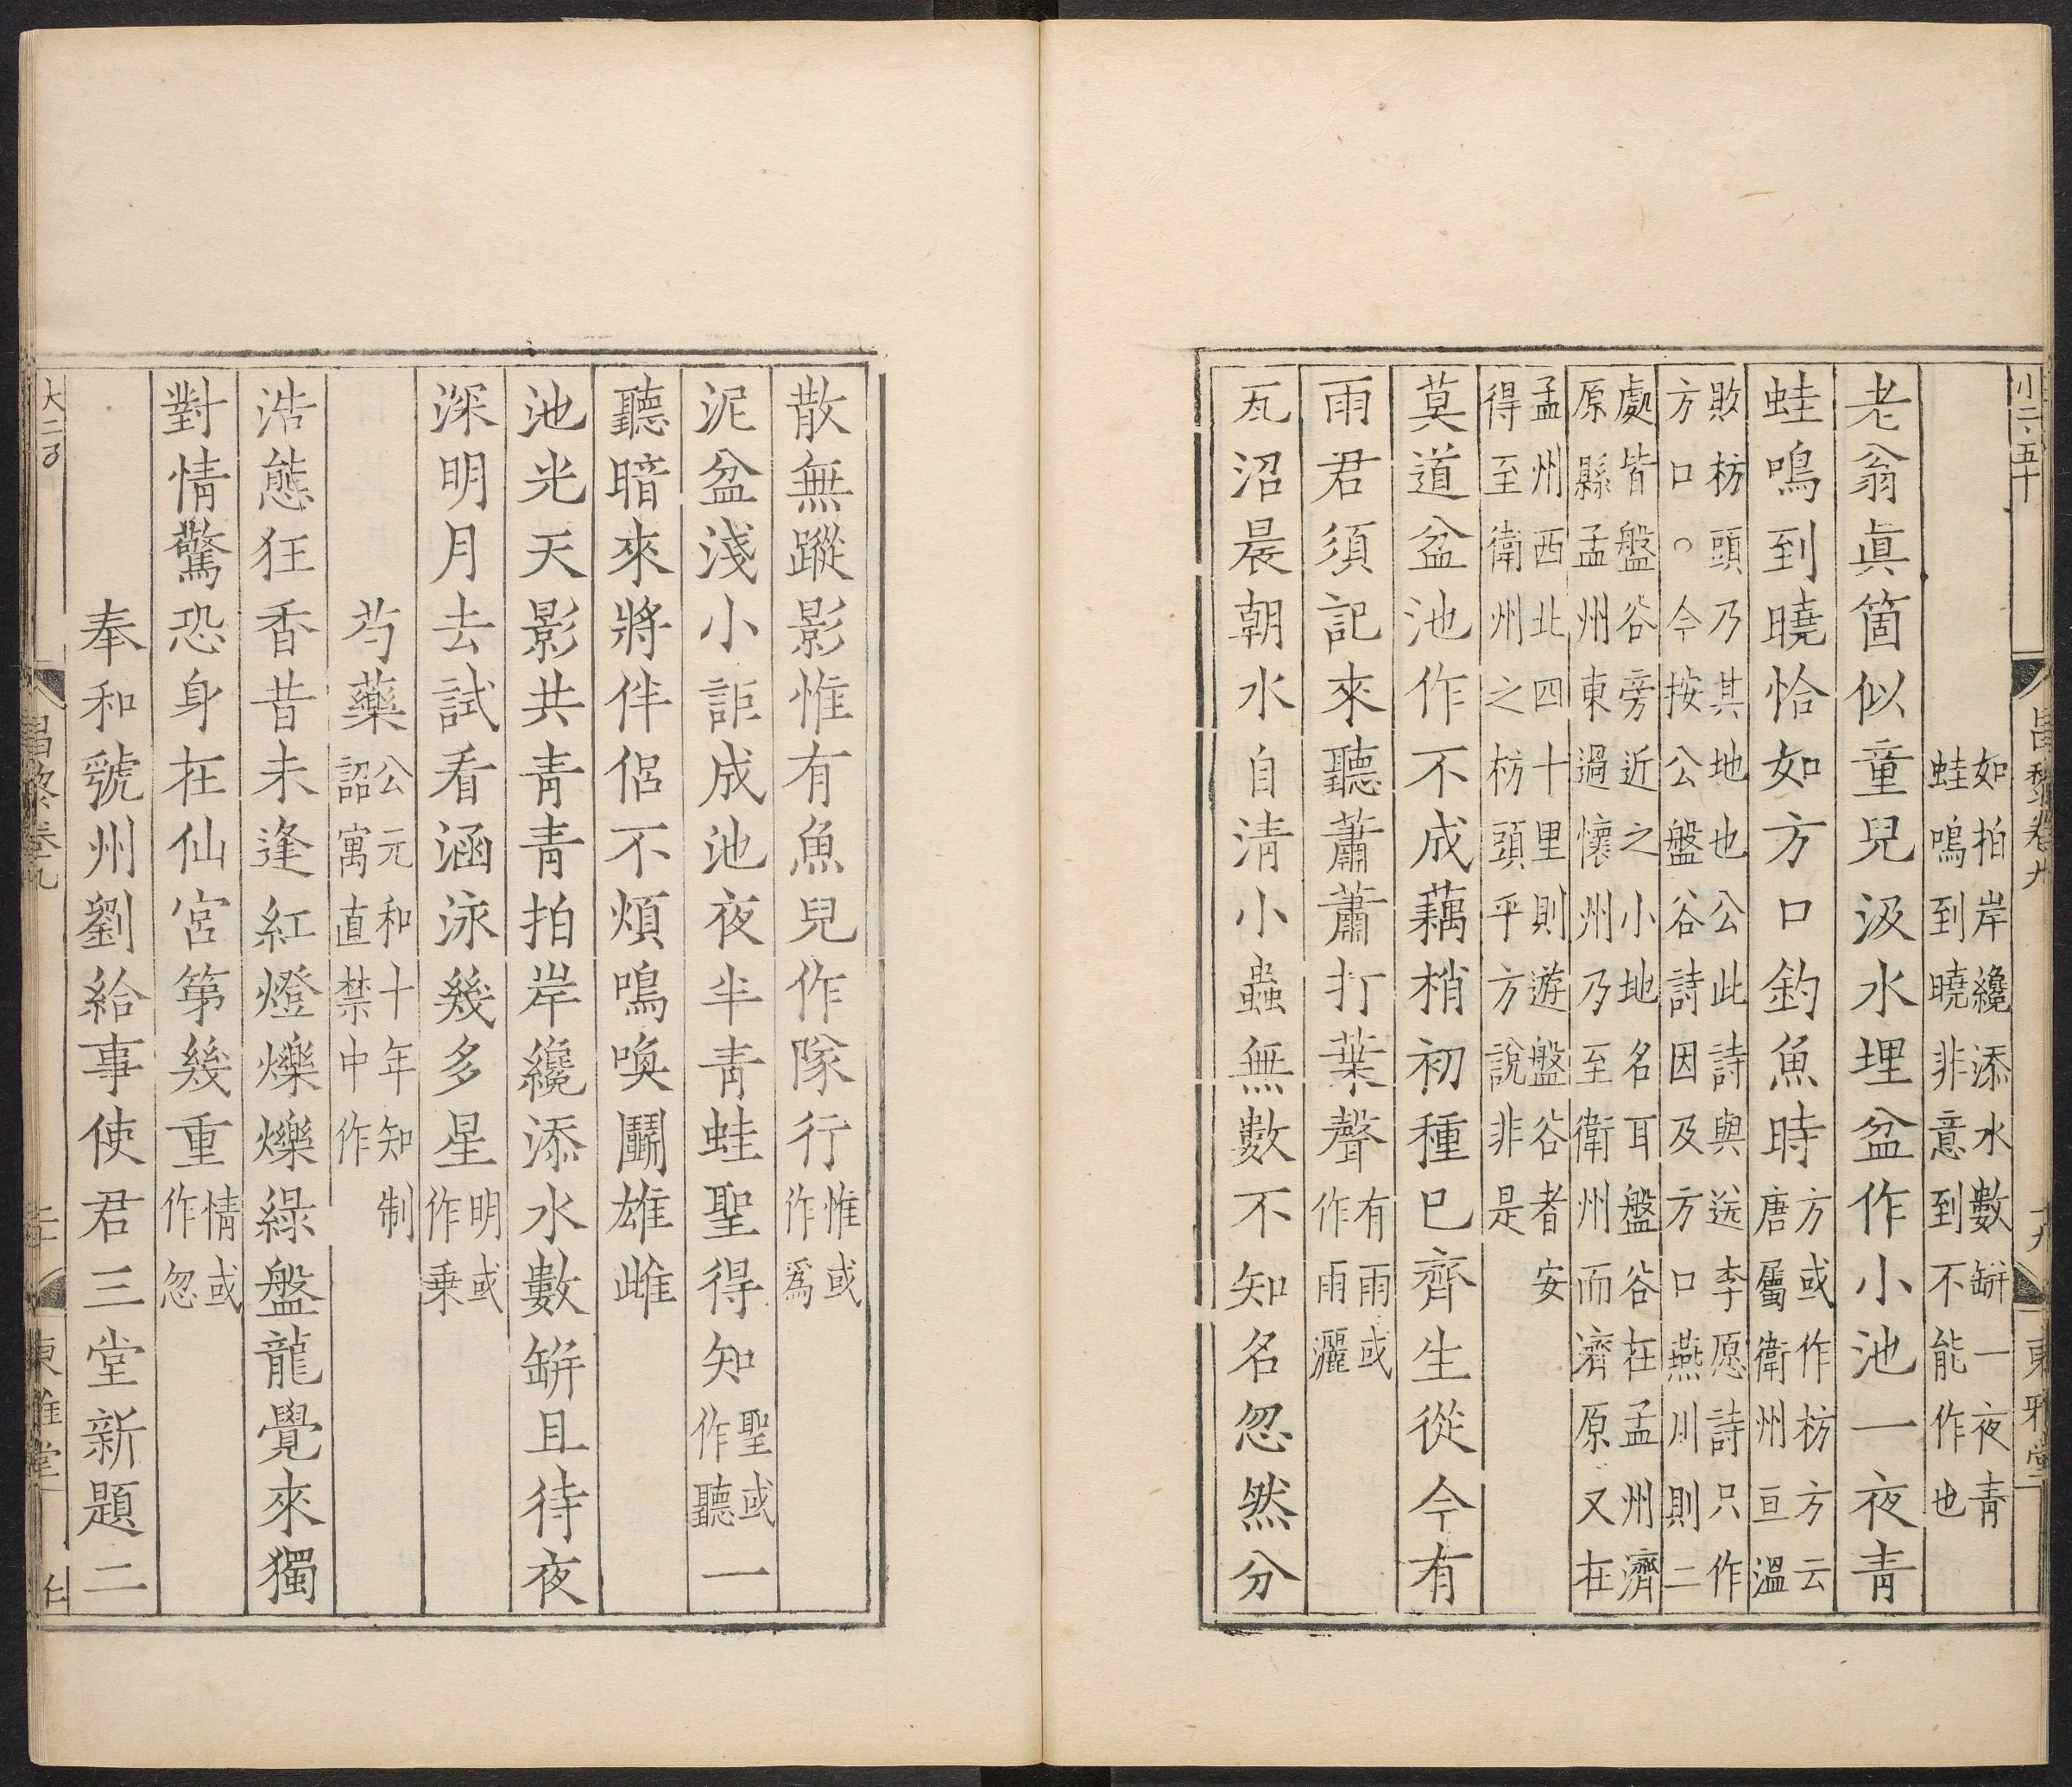 小二·五十 昌黎卷九 十九 東雅堂
如拍岸纔添水數缾一夜青
蛙鳴到曉非意到不能作也
老翁眞箇似童兒汲水埋盆作小池一夜青
蛙鳴到曉恰如方口釣魚時方或作枋方云
唐屬衛州亘溫
敗枋頭乃其地也公此詩與送李愿詩只作
方口○今按公盤谷詩因及方口燕川則二
處皆盤谷旁近之小地名耳盤谷在孟州濟
原縣孟州東過懷州乃至衛州而濟原又在
孟州西北四十里則遊盤谷者安
得至衛州之枋頭乎方說非是
莫道盆池作不成藕梢初種巳齊生從今有
雨君須記來聽蕭蕭打葉聲有雨或
作雨灑
瓦沼晨朝水自清小蟲無數不知名忽然分
散無蹤影惟有魚兒作隊行惟或
作爲
泥盆淺小詎成池夜半青蛙聖得知聖或
作聽
一
聽暗來將伴侶不煩鳴喚鬬雄雌
池光天影共青青拍岸纔添水數缾且待夜
深明月去試看涵泳幾多星明或
作乗
芍藥公元和十年知制
詔寓直禁中作
浩態狂香昔未逢紅燈爍爍綠盤龍覺來獨
對情驚恐身在仙宮第幾重情或
作忽
奉和虢州劉給事使君三堂新題二
昌黎卷九 東雅堂